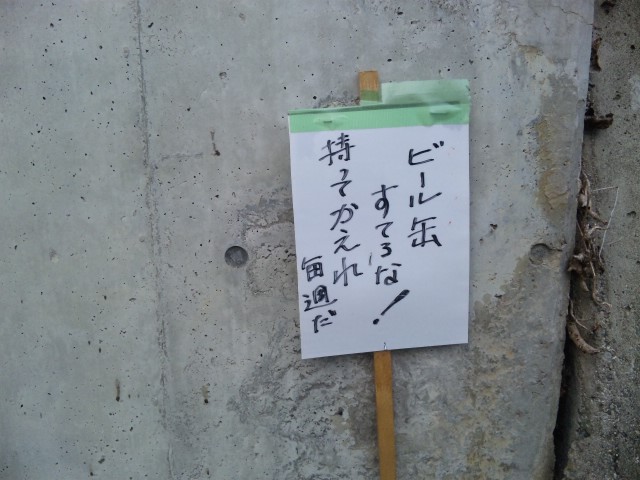 ビール缶
すてるな!
持ってかえれ
毎週だ